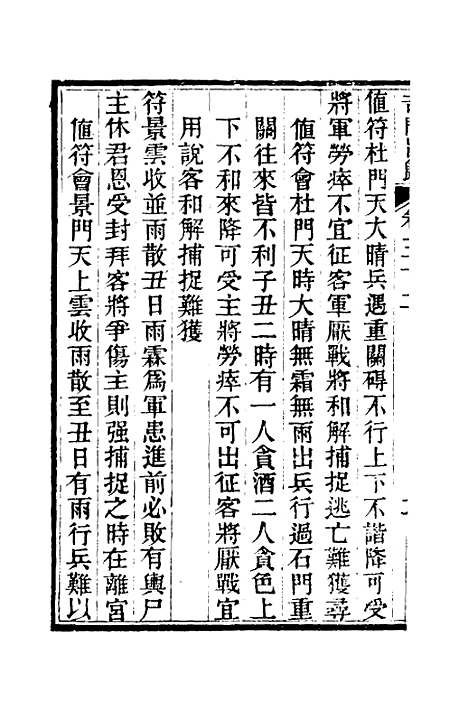 值符杜門天大晴兵遇重關礙不行上下不諧降可受
將軍勞瘁不宜征客軍厭戰將和解捕捉逃亡難獲尋
值符會杜門天時大晴無霜無雨出兵行過石門重
關往來皆不利子丑二時有一人貪酒二人貪色上
下不和來降可受主將勞瘁不可出征客將厭戰宜
用說客和解捕捉難獲
符景雲收並雨散丑日雨霖為軍患進前必敗有輿尸
主休君恩受封拜客將爭傷主則强捕捉之時在離宮
值符會景門天上雲收雨散至丑日有雨行兵難以